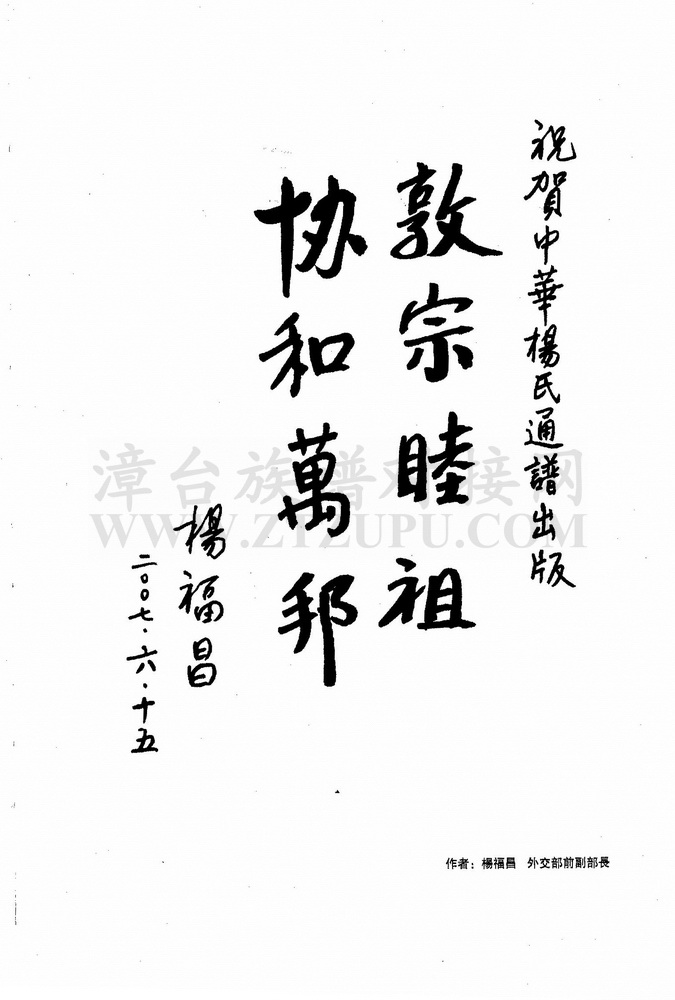 祝賀中華楊氏通譜出版
敦宗睦祖
协和萬邦
楊福昌
二〇〇七·六·十五
漳台族谱对接网
WWW.ZTZUPU.COM
作者：楊福昌 外交部前副部長